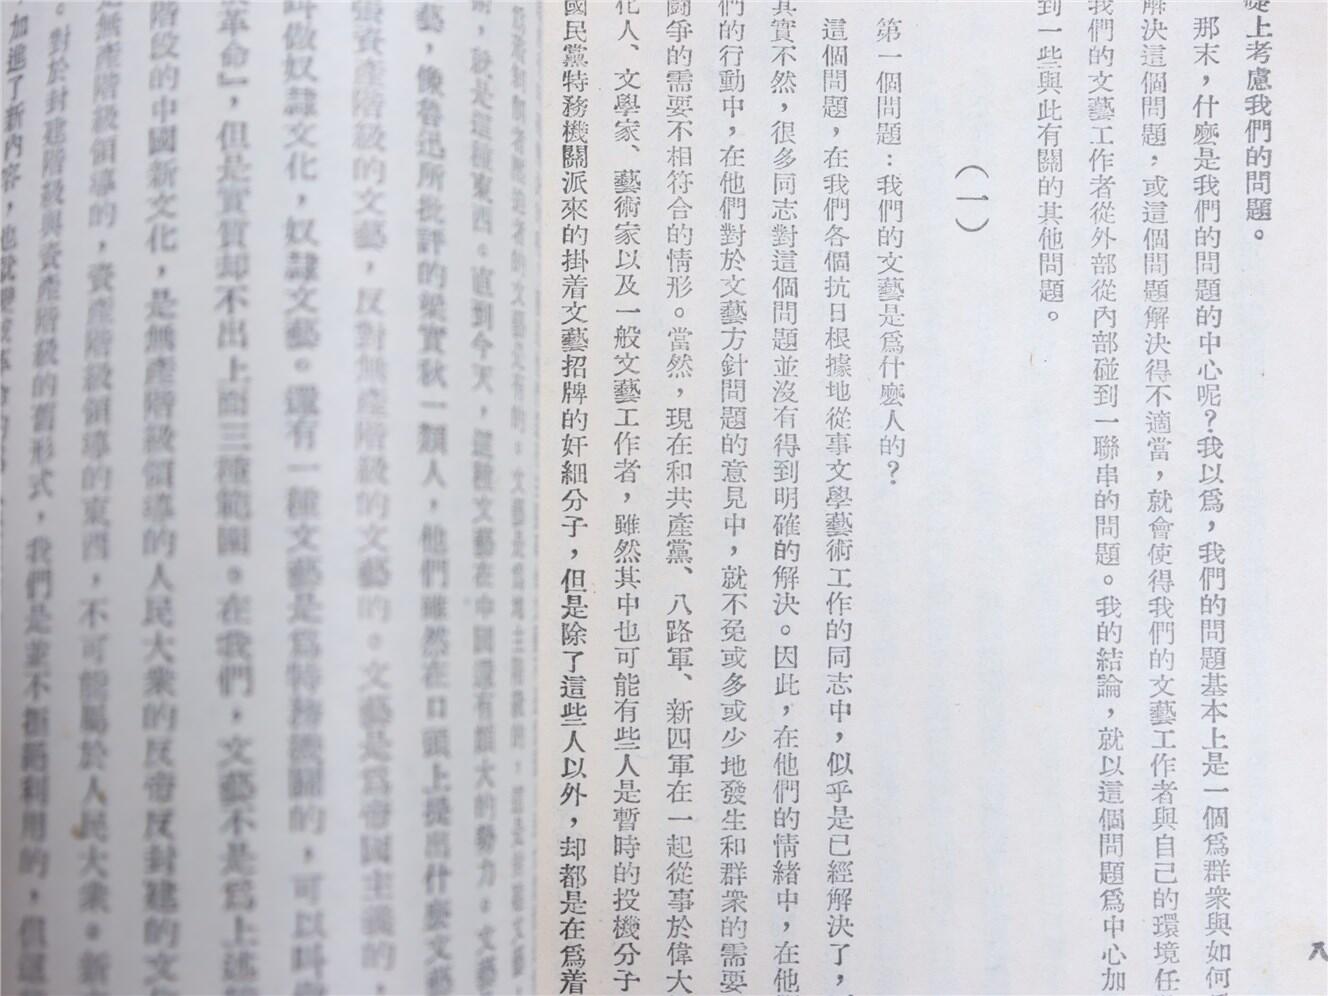 礎上考慮我們的問題。
那末，什麽是我們的問題的中心呢？我以爲，我們的問題基本上是一個爲群衆與如何
解決這個問題，或這個問題解決得不適當，就會使得我們的文藝工作者與自己的環境任
我們的文藝工作者從外部從內部碰到一聯串的問題。我的結論，就以這個問題爲中心加
到一些與此有關的其他問題。
（一）
第一個問題：我們的文藝是爲什麽人的？
這個問題，在我們各個抗日根據地從事文學藝術工作的同志中，似乎是已經解決了，
其實不然，很多同志對這個問題並沒有得到明確的解決。因此，在他們的情緒中，在他
們的行動中，在他們對於文藝方針問題的意見中，就不免或多或少地發生和群衆的需要
鬪爭的需要不相符合的情形。當然，現在和共產黨、八路軍、新四軍在一起從事於偉大
化人、文學家、藝術家以及一般文藝工作者，雖然其中也可能有些人是暫時的投機分子
國民黨特務機關派來的掛着文藝招牌的奸細分子，但是除了這些人以外，却都是在爲着
就是這種東西。直到今天，這種文藝在中國還有頗大的勢力。文藝
藝，像魯迅所批評的梁實秋一類人，他們雖然在口頭上提出什麽文藝
張資產階級的文藝，反對無產階級的文藝的。文藝是爲帝國主義的，
叫做奴隸文化，奴隸文藝。還有一種文藝是爲特務機關的，可以叫
革命」，但是實質却不出上面三種範圍。在我們，文藝不是爲上述
階段的中國新文化，是無產階級領導的人民大衆的反帝反封建的文
是無產階級領導的，資產階級領導的東西，不可能屬於人民大衆。新
。對於封建階級與資產階級的舊形式，我們是並不拒絕利用的，但這
加進了新內容，也就
八